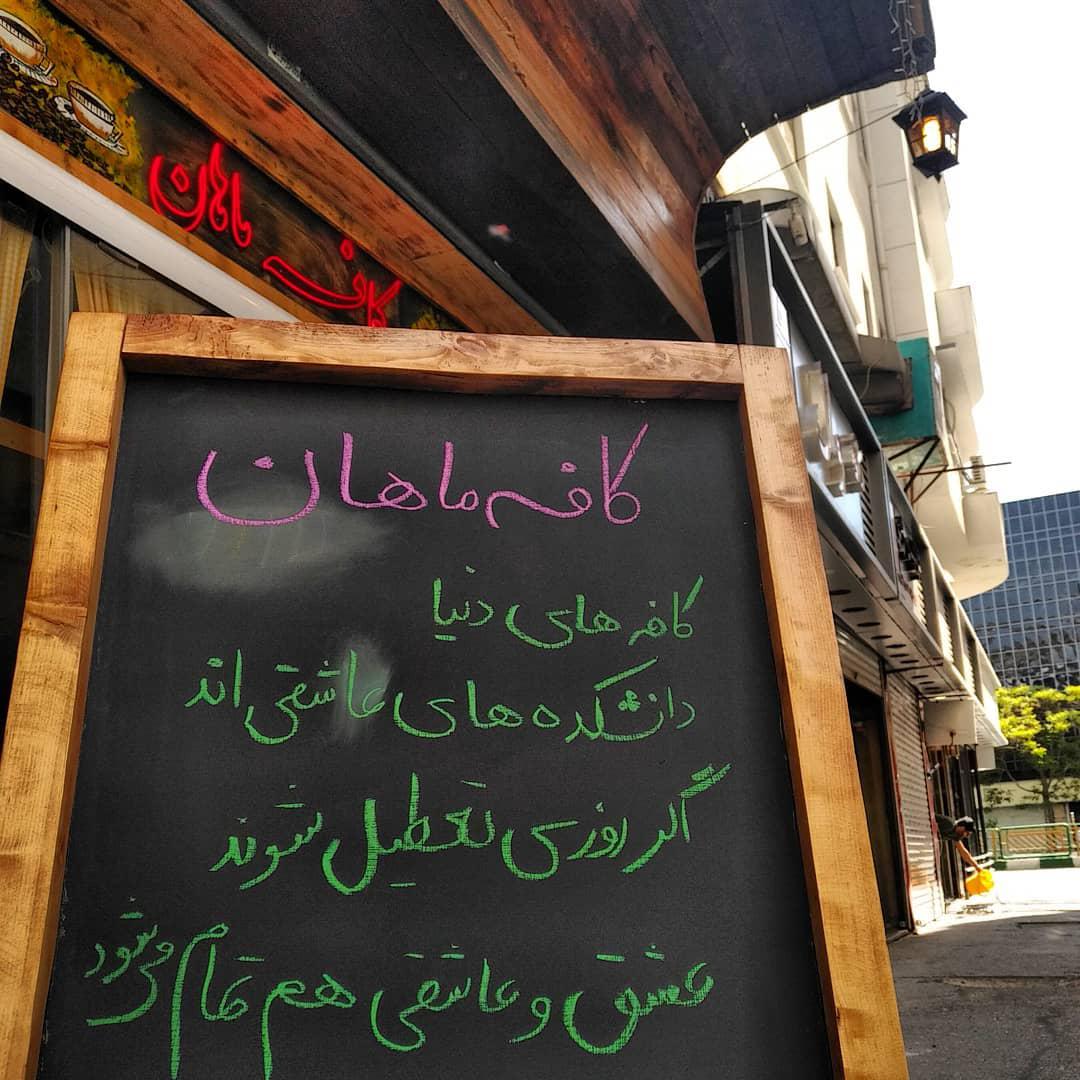 کافه ماهان
کافه ماهان
کافه های دنیا
دانشکده های عاشقی اند
اگر روزی تعطیل شوند
عشق و عاشقی هم تمام می شود